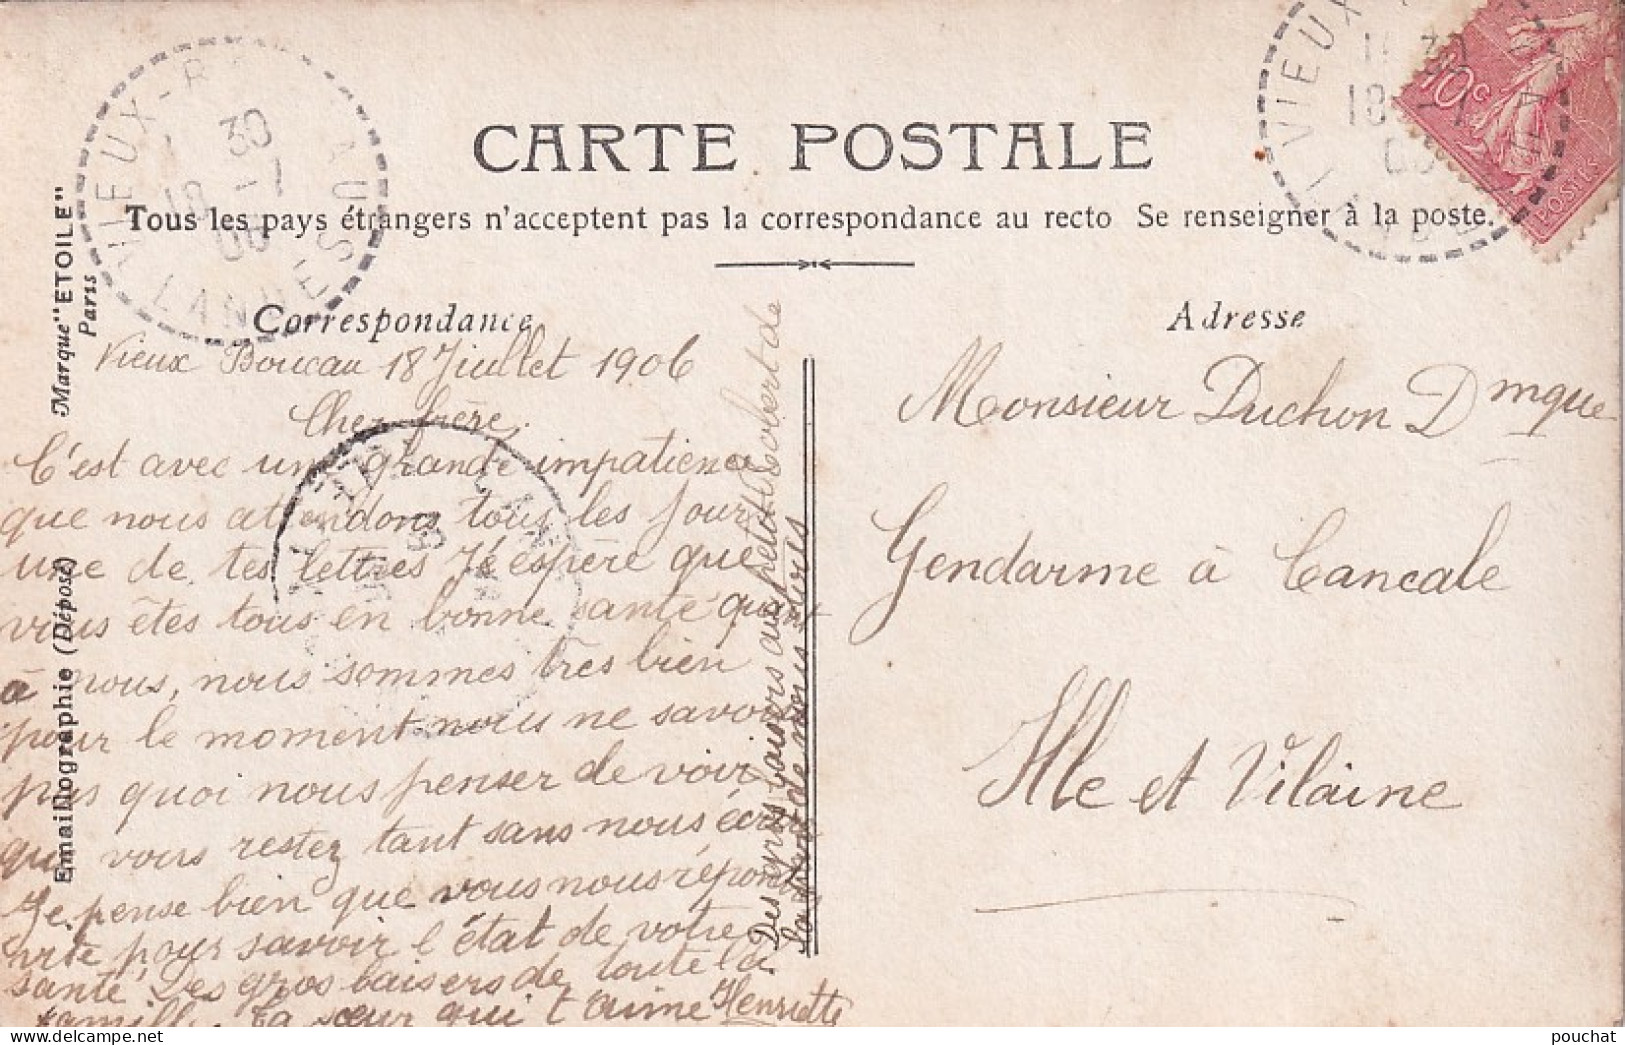 CARTE POSTALE
Tous les pays étrangers n'acceptent pas la correspondance au recto Se renseigner à la poste.
Correspondance
Adresse
Marque "ETOILE"
Paris
Emaillographie (Déposé)
Vieux Boucau 18 Juillet 1906
Cher frère,
C'est avec une grande impatience
que nous attendons tous les jours
une de tes lettres Jé espère que
vous êtes tous en bonne santé quant
à nous, nous sommes très bien
pour le moment nous ne savons
pas quoi nous penser de voir
que vous restez tant sans nous écrire
Je pense bien que vous nous répondrez
vite pour savoir l'état de votre
santé Des gros baisers de toute la
famille. Ta sœur qui t'aime Henriette
Des gros baisers au petit Robert de
la part de nous autres
Monsieur Duchon Dmque
Gendarme à Cancale
Ille et Vilaine
10c
POSTES
VIEUX-
LANDES
30
18 -7
06
VIEUX
30
18
pouchat